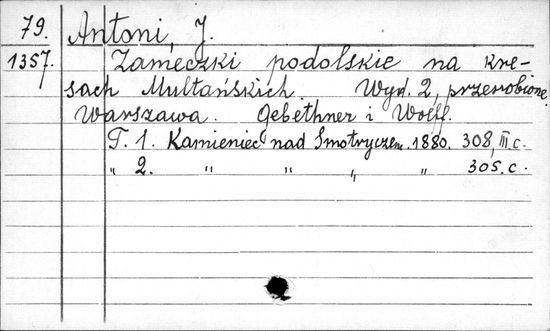 79. Antoni, J.
1357. Zameczki podolskie na kre-
sach Multańskich. Wyd. 2, przerobione.
Warszawa. Gebethner i Wolff.
T. 1. Kamieniec nad Smotryczem. 1880. 308, III c.
" 2. " " " " 305. c.